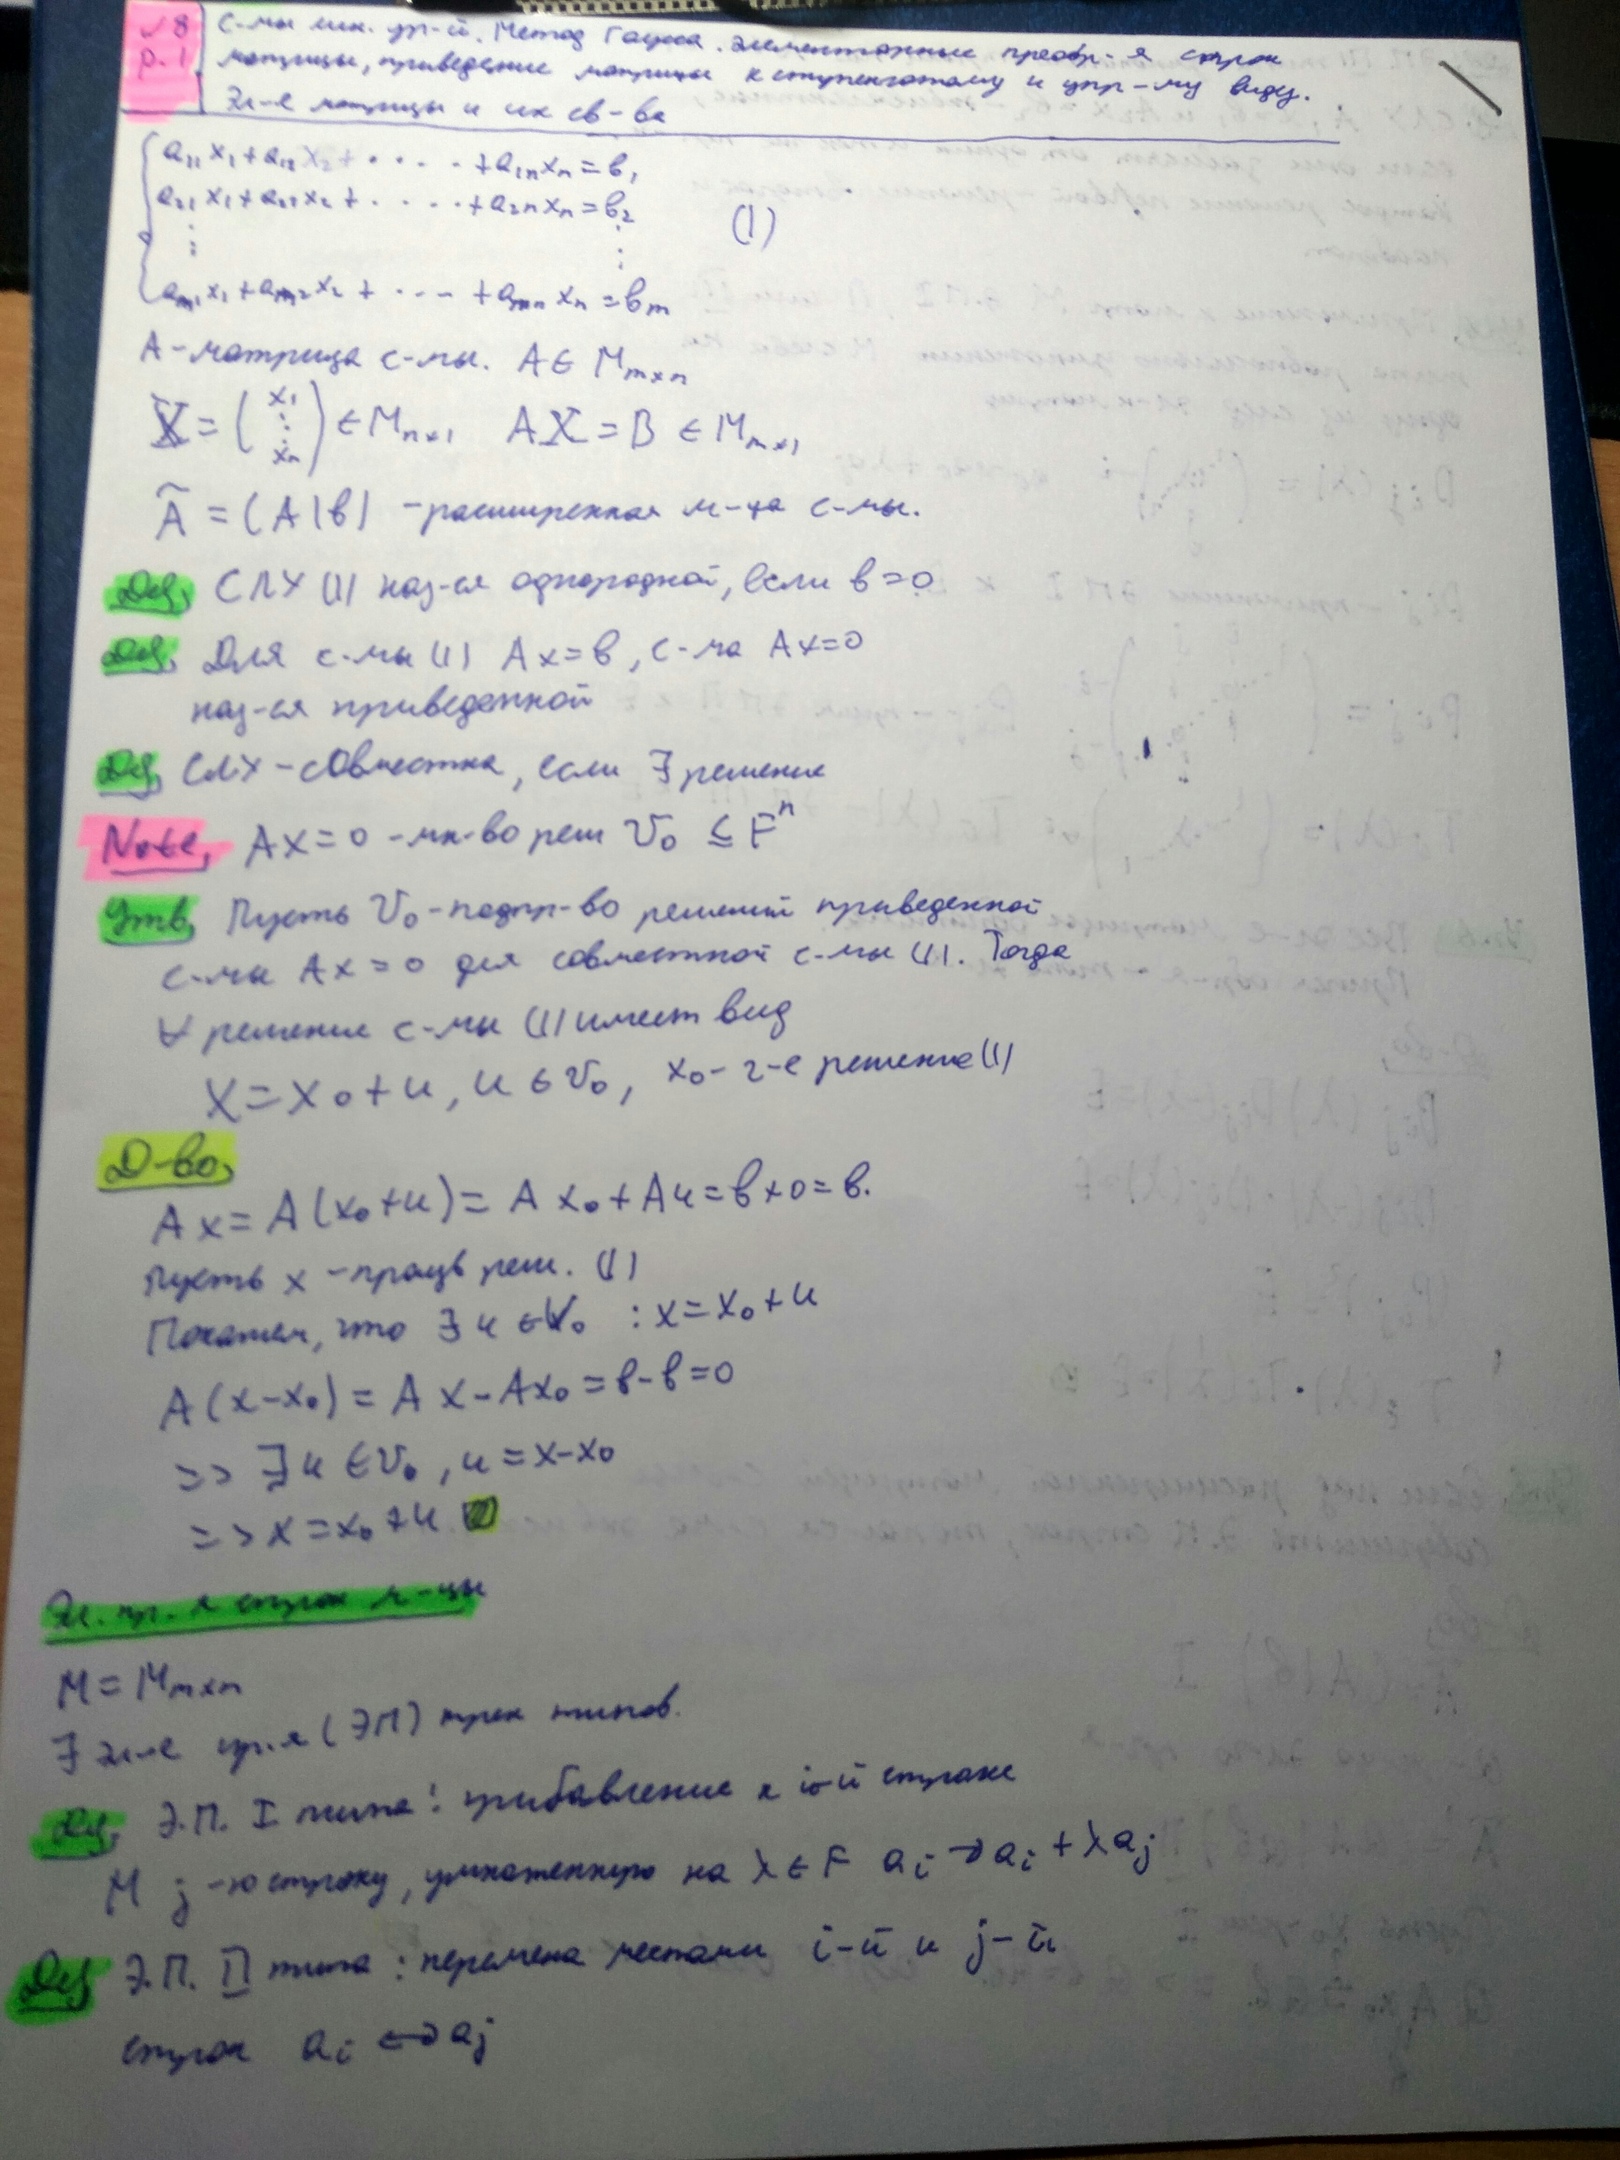 №8 С-мы лин. ур-й. Метод Гаусса. Элементарные преобр-я строк
р.1 матрицы, приведение матрицы к ступенчатому и упр-му виду.
Эл-е матрицы и их св-ва
a₁₁x₁+a₁₂x₂+ . . . . +a₁ₙxₙ=b₁
a₂₁x₁+a₂₂x₂+ . . . . +a₂ₙxₙ=b₂ (1)
⋮ ⋮
aₘ₁x₁+aₘ₂x₂+ . . . +aₘₙxₙ=bₘ
A-матрица с-мы. A∈ Mₘₓₙ
X=(x₁ ⋮ xₙ)∈Mₙₓ₁ AX=B ∈Mₘₓ₁
Ã=(A|b) -расширенная м-ца с-мы.
Def, СЛУ (1) наз-ся однородной, если b=0
Def, Для с-мы (1) Ax=b, с-ма Ax=0
наз-ся приведенной
Def, СЛУ-совместна, если ∃ решение
Note, Ax=0 -мн-во реш V₀ ≤ Fⁿ
Утв, Пусть V₀-подпр-во решений приведенной
с-мы Ax=0 для совместной с-мы (1). Тогда
∀ решение с-мы (1) имеет вид
X=x₀+u, u∈V₀, x₀- ч-е решение (1)
Д-во,
Ax=A(x₀+u)=Ax₀+Au=b+0=b.
Пусть x -произв реш. (1)
Покажем, что ∃u∈V₀ : x=x₀+u
A(x-x₀)=Ax-Ax₀=b-b=0
=>> ∃u∈V₀, u=x-x₀
=> x=x₀+u
Эл. пр. я строк м-цы
M=Mₘₓₙ
∃ эл-е пр.я (ЭП) трех типов.
Def, Э.П. I типа: прибавление к i-й строке
M j-ю строку, умноженную на λ∈F aᵢ→aᵢ+λaⱼ
Def Э.П. II типа: перемена местами i-й и j-й
строк aᵢ↔aⱼ